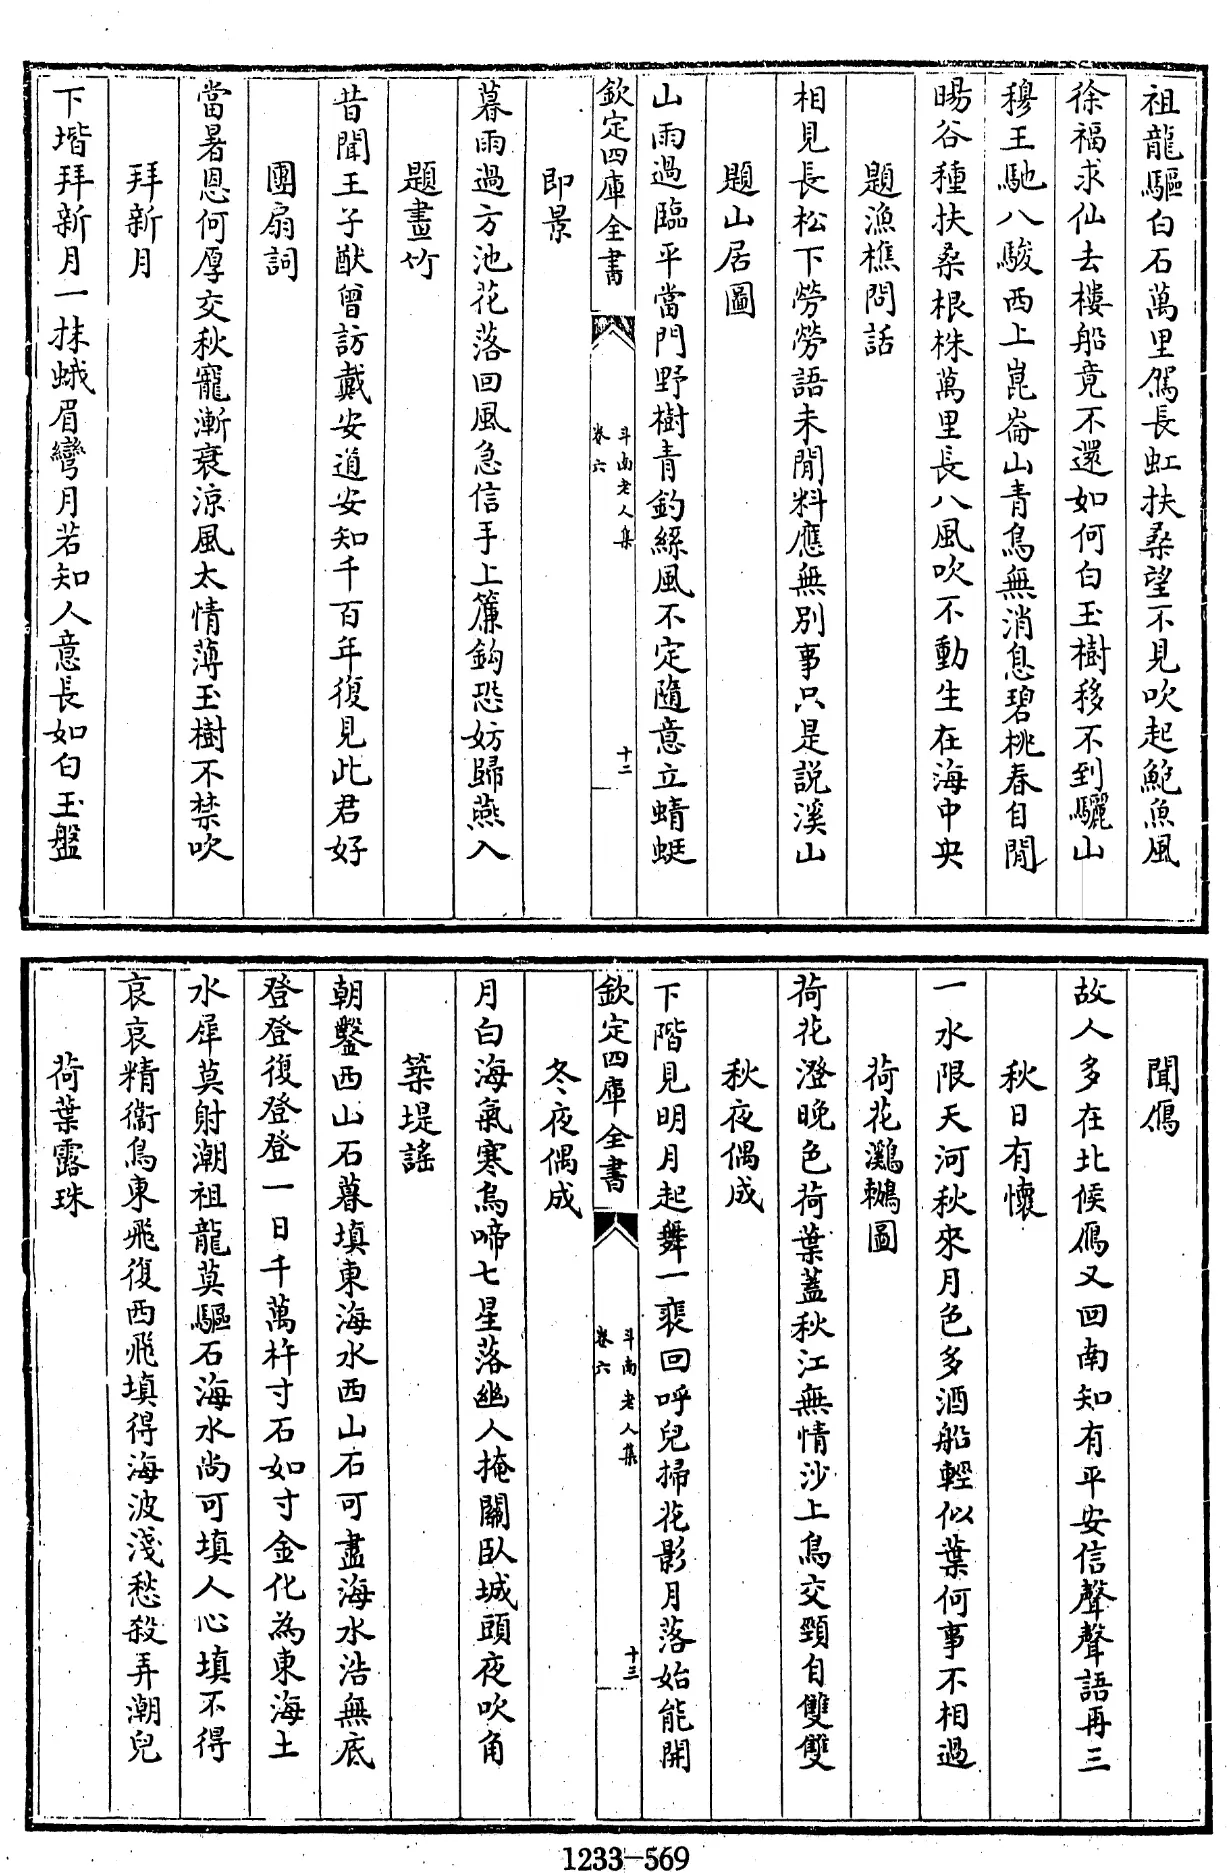 祖龍驅白石萬里駕長虹扶桑望不見吹起鮑魚風
徐福求仙去樓船竟不還如何白玉樹移不到驪山
穆王馳八駿西上崑崙山青鳥無消息碧桃春自閒
暘谷種扶桑根株萬里長八風吹不動生在海中央
題漁樵問話
相見長松下勞勞語未閒料應無別事只是説溪山
題山居圖
山雨過臨平當門野樹青釣絲風不定隨意立蜻蜓
欽定四庫全書
斗南老人集
卷六
十二
即景
暮雨過方池花落回風急信手上簾鈎恐妨歸燕入
題畫竹
昔聞王子猷曾訪戴安道安知千百年復見此君好
團扇詞
當暑恩何厚交秋寵漸衰涼風太情薄玉樹不禁吹
拜新月
下堦拜新月一抹蛾眉彎月若知人意長如白玉盤
聞鴈
故人多在北候鴈又回南知有平安信聲聲語再三
秋日有懷
一水限天河秋來月色多酒船輕似葉何事不相過
荷花鸂鶒圖
荷花澄晚色荷葉蓋秋江無情沙上鳥交頸自雙雙
秋夜偶成
下階見明月起舞一裵回呼兒掃花影月落始能開
欽定四庫全書
斗南老人集
卷六
十三
冬夜偶成
月白海氣寒烏啼七星落幽人掩關臥城頭夜吹角
築堤謠
朝鑿西山石暮填東海水西山石可盡海水浩無底
登登復登登一日千萬杵寸石如寸金化為東海土
水犀莫射潮祖龍莫驅石海水尚可填人心填不得
哀哀精衞鳥東飛復西飛填得海波淺愁殺弄潮兒
荷葉露珠
1233-569